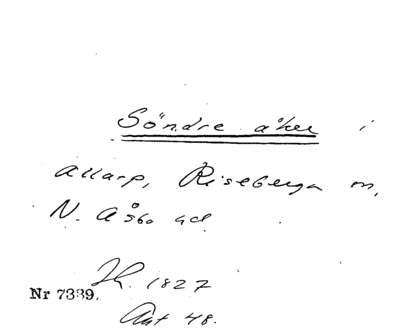 Söndre åker i
Allarp, Riseberga sn,
N. Åsbo hd.
Jh. 1827
Nr 7389.
Akt 48.